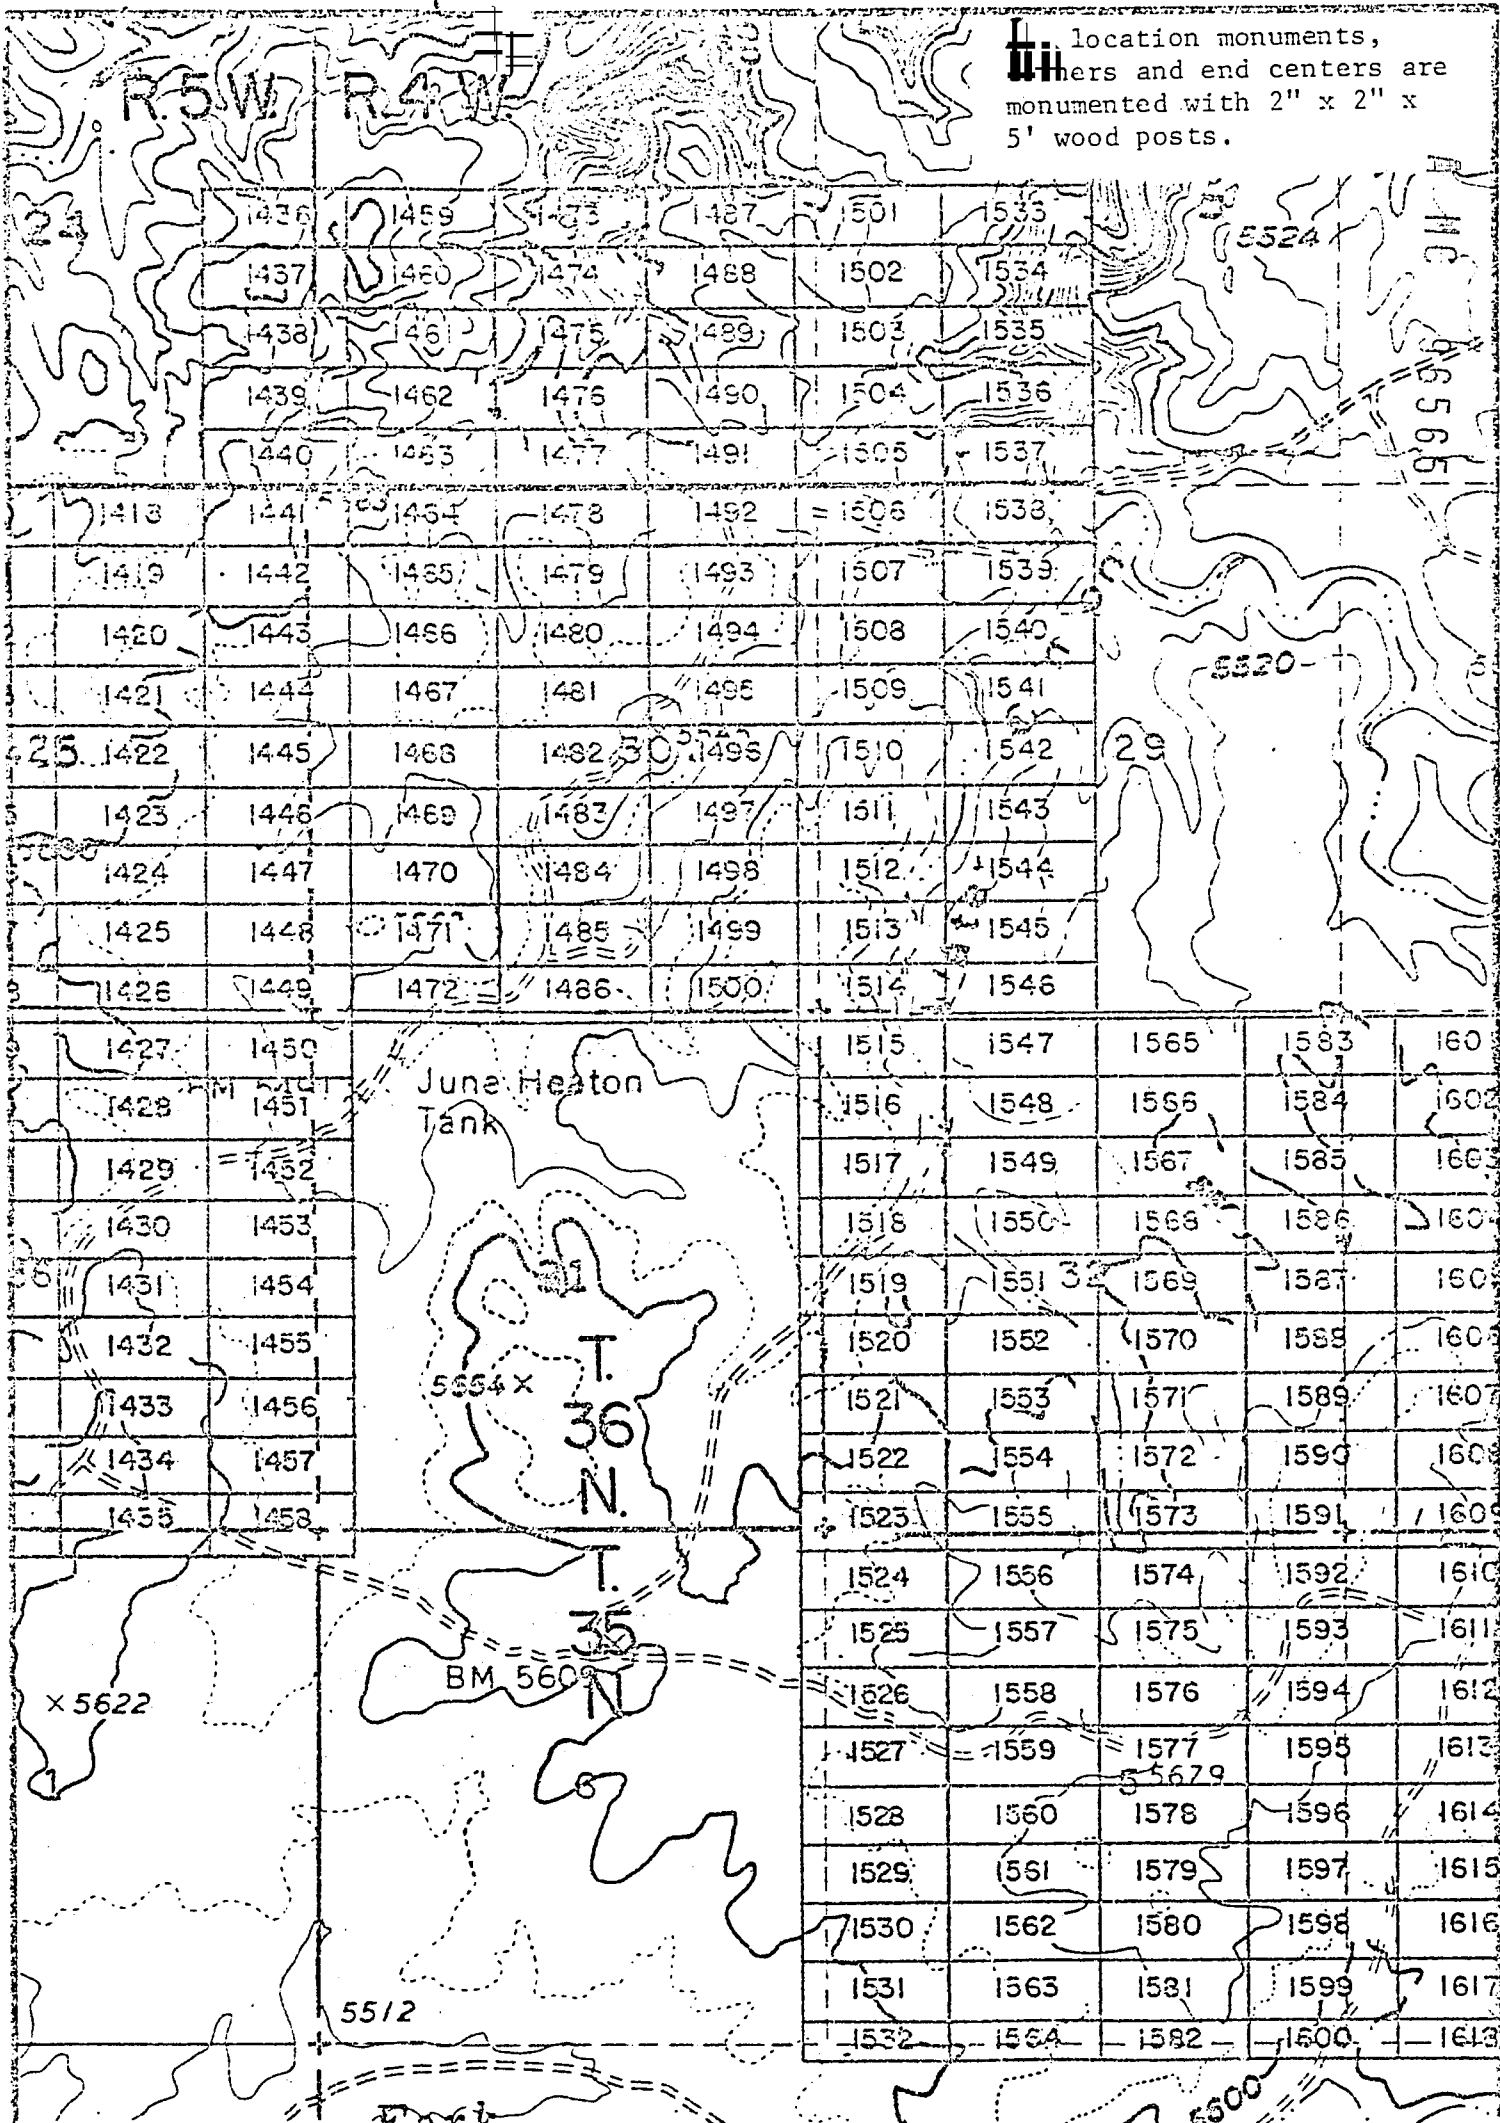 location monuments,
and end centers are
monumented with 2" x 2" x
5' wood posts.
R.5W. R.4W.
24 1436 1459 1473 1487 1501 1533
5524
1437 1460 1474 1488 1502 1534
1438 1461 1475 1489 1503 1535
1439 1462 1476 1490 1504 1536
1440 1463 1477 1491 1505 1537
1418 1441 1464 1478 1492 1506 1538
1419 1442 1465 1479 1493 1507 1539
1420 1443 1466 1480 1494 1508 1540
5520
1421 1444 1467 1481 1495 1509 1541
25 1422 1445 1468 1482 30 1496 1510 1542 29
1423 1446 1469 1483 1497 1511 1543
1424 1447 1470 1484 1498 1512 1544
1425 1448 1471 1485 1499 1513 1545
1426 1449 1472 1486 1500 1514 1546
1427 1450 1515 1547 1565 1583 160
June Heaton
Tank
1428 1451 1516 1548 1566 1584 1602
1429 1452 1517 1549 1567 1585 1603
1430 1453 1518 1550 1568 1586 160
36 1431 1454 31 1519 1551 32 1569 1587 160
1432 1455 1520 1552 1570 1588
T.
36
N.
5654 ×
1433 1456 1521 1553 1571 1589 1607
1434 1457 1522 1554 1572 1590
1435 1458 1523 1555 1573 1591 1609
T.
35
N
1524 1556 1574 1592 1610
1525 1557 1575 1593 1611
BM 5609
× 5622
1526 1558 1576 1594 1612
1527 1559 1577 1595 1613
5 5679
1 6
1528 1560 1578 1596 1614
1529 1561 1579 1597 1615
1530 1562 1580 1598 1616
1531 1563 1581 1599 1617
5512
1532 1564 1582 1600 1618
5600